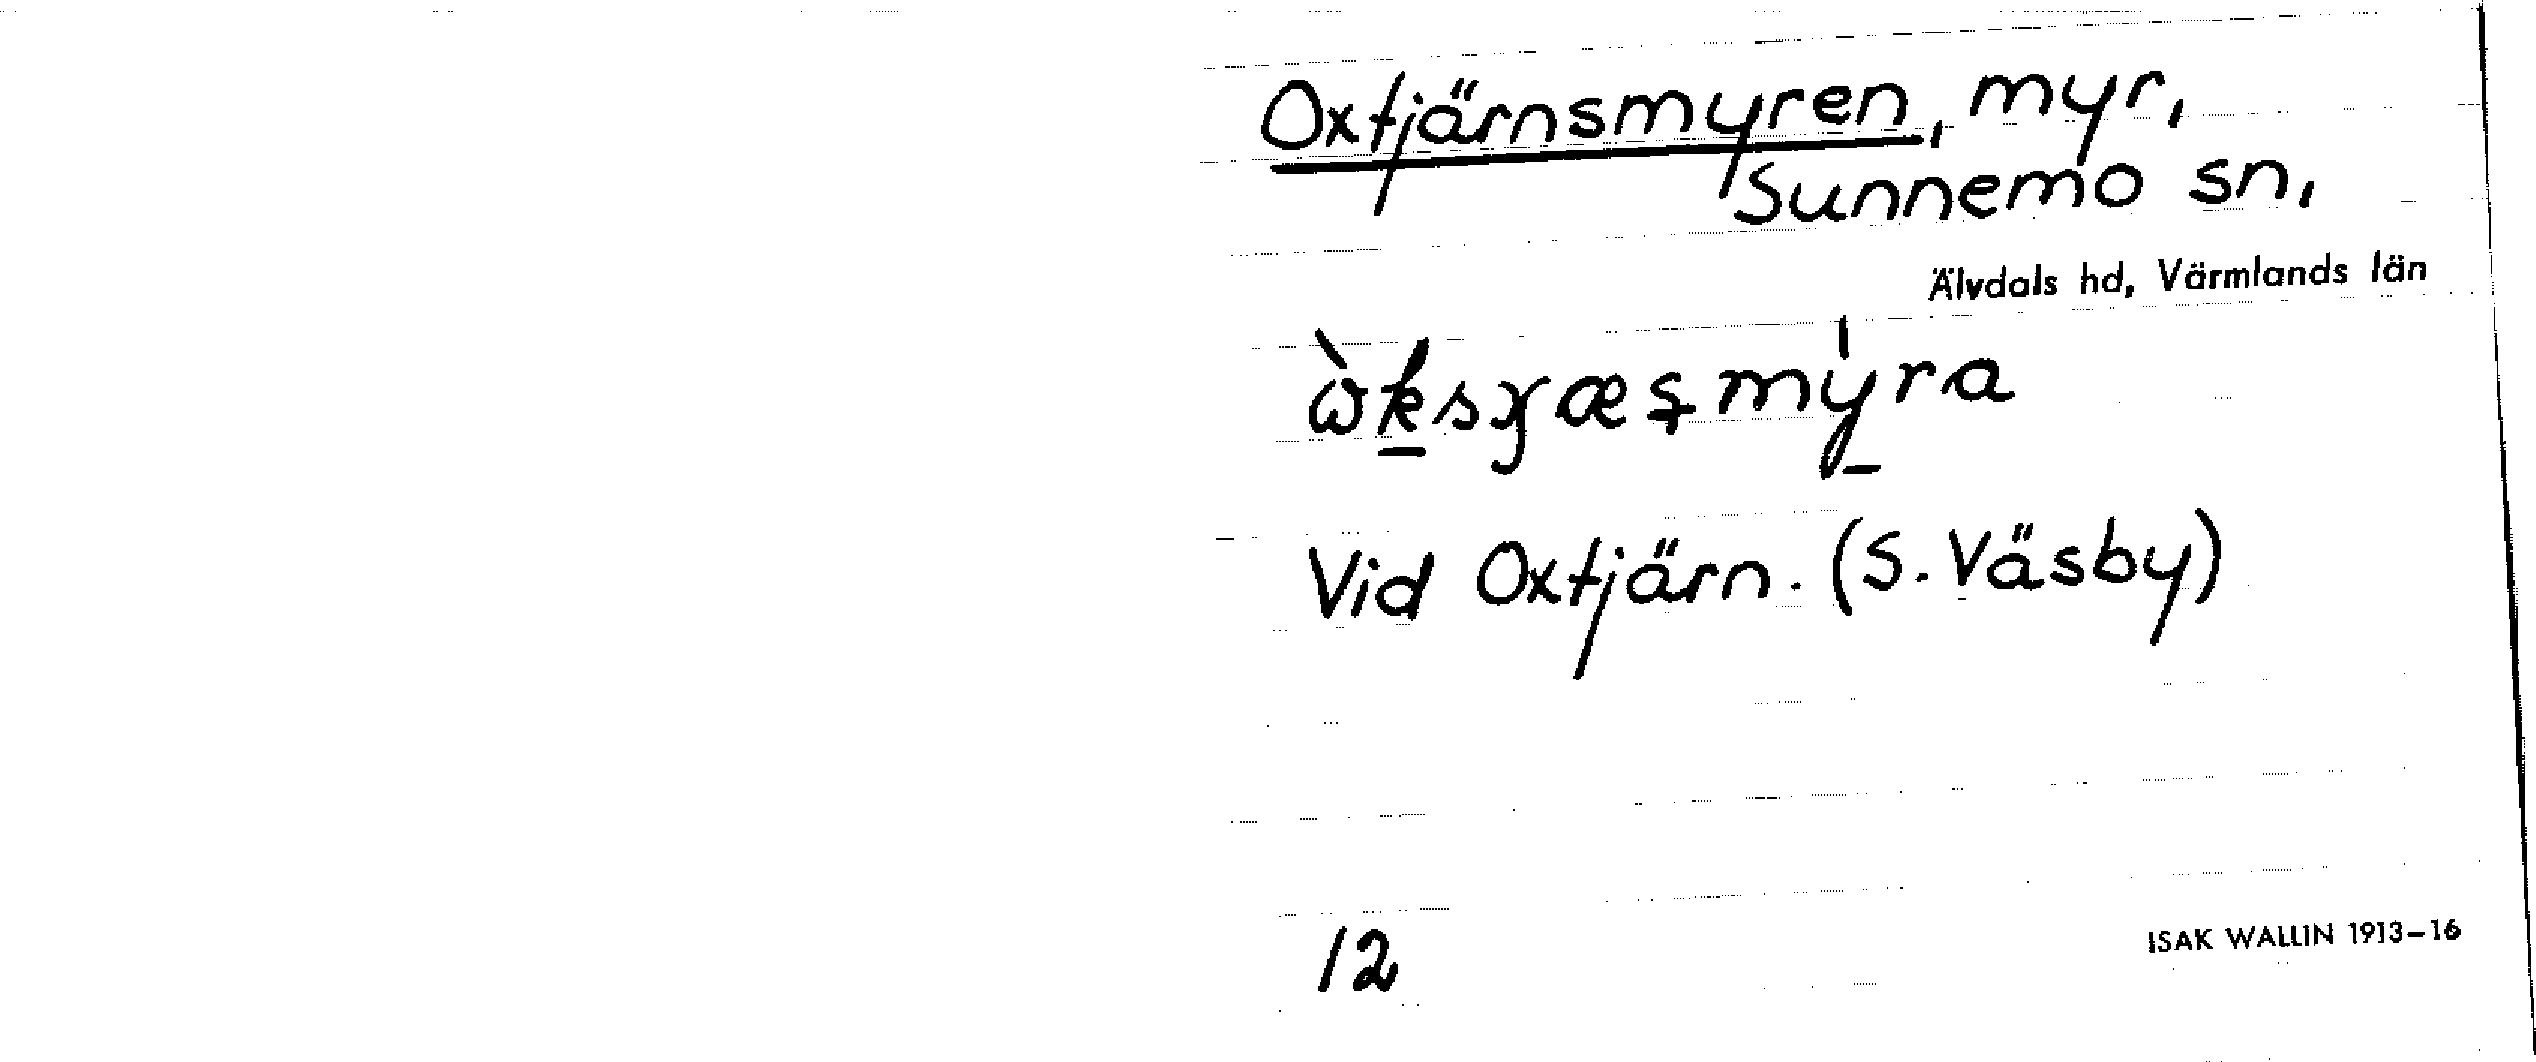 Oxtjärnsmyren, myr,
Sunnemo sn,
Älvdals hd, Värmlands län
Vid Oxtjärn. (S. Väsby)
12
ISAK WALLIN 1913–16